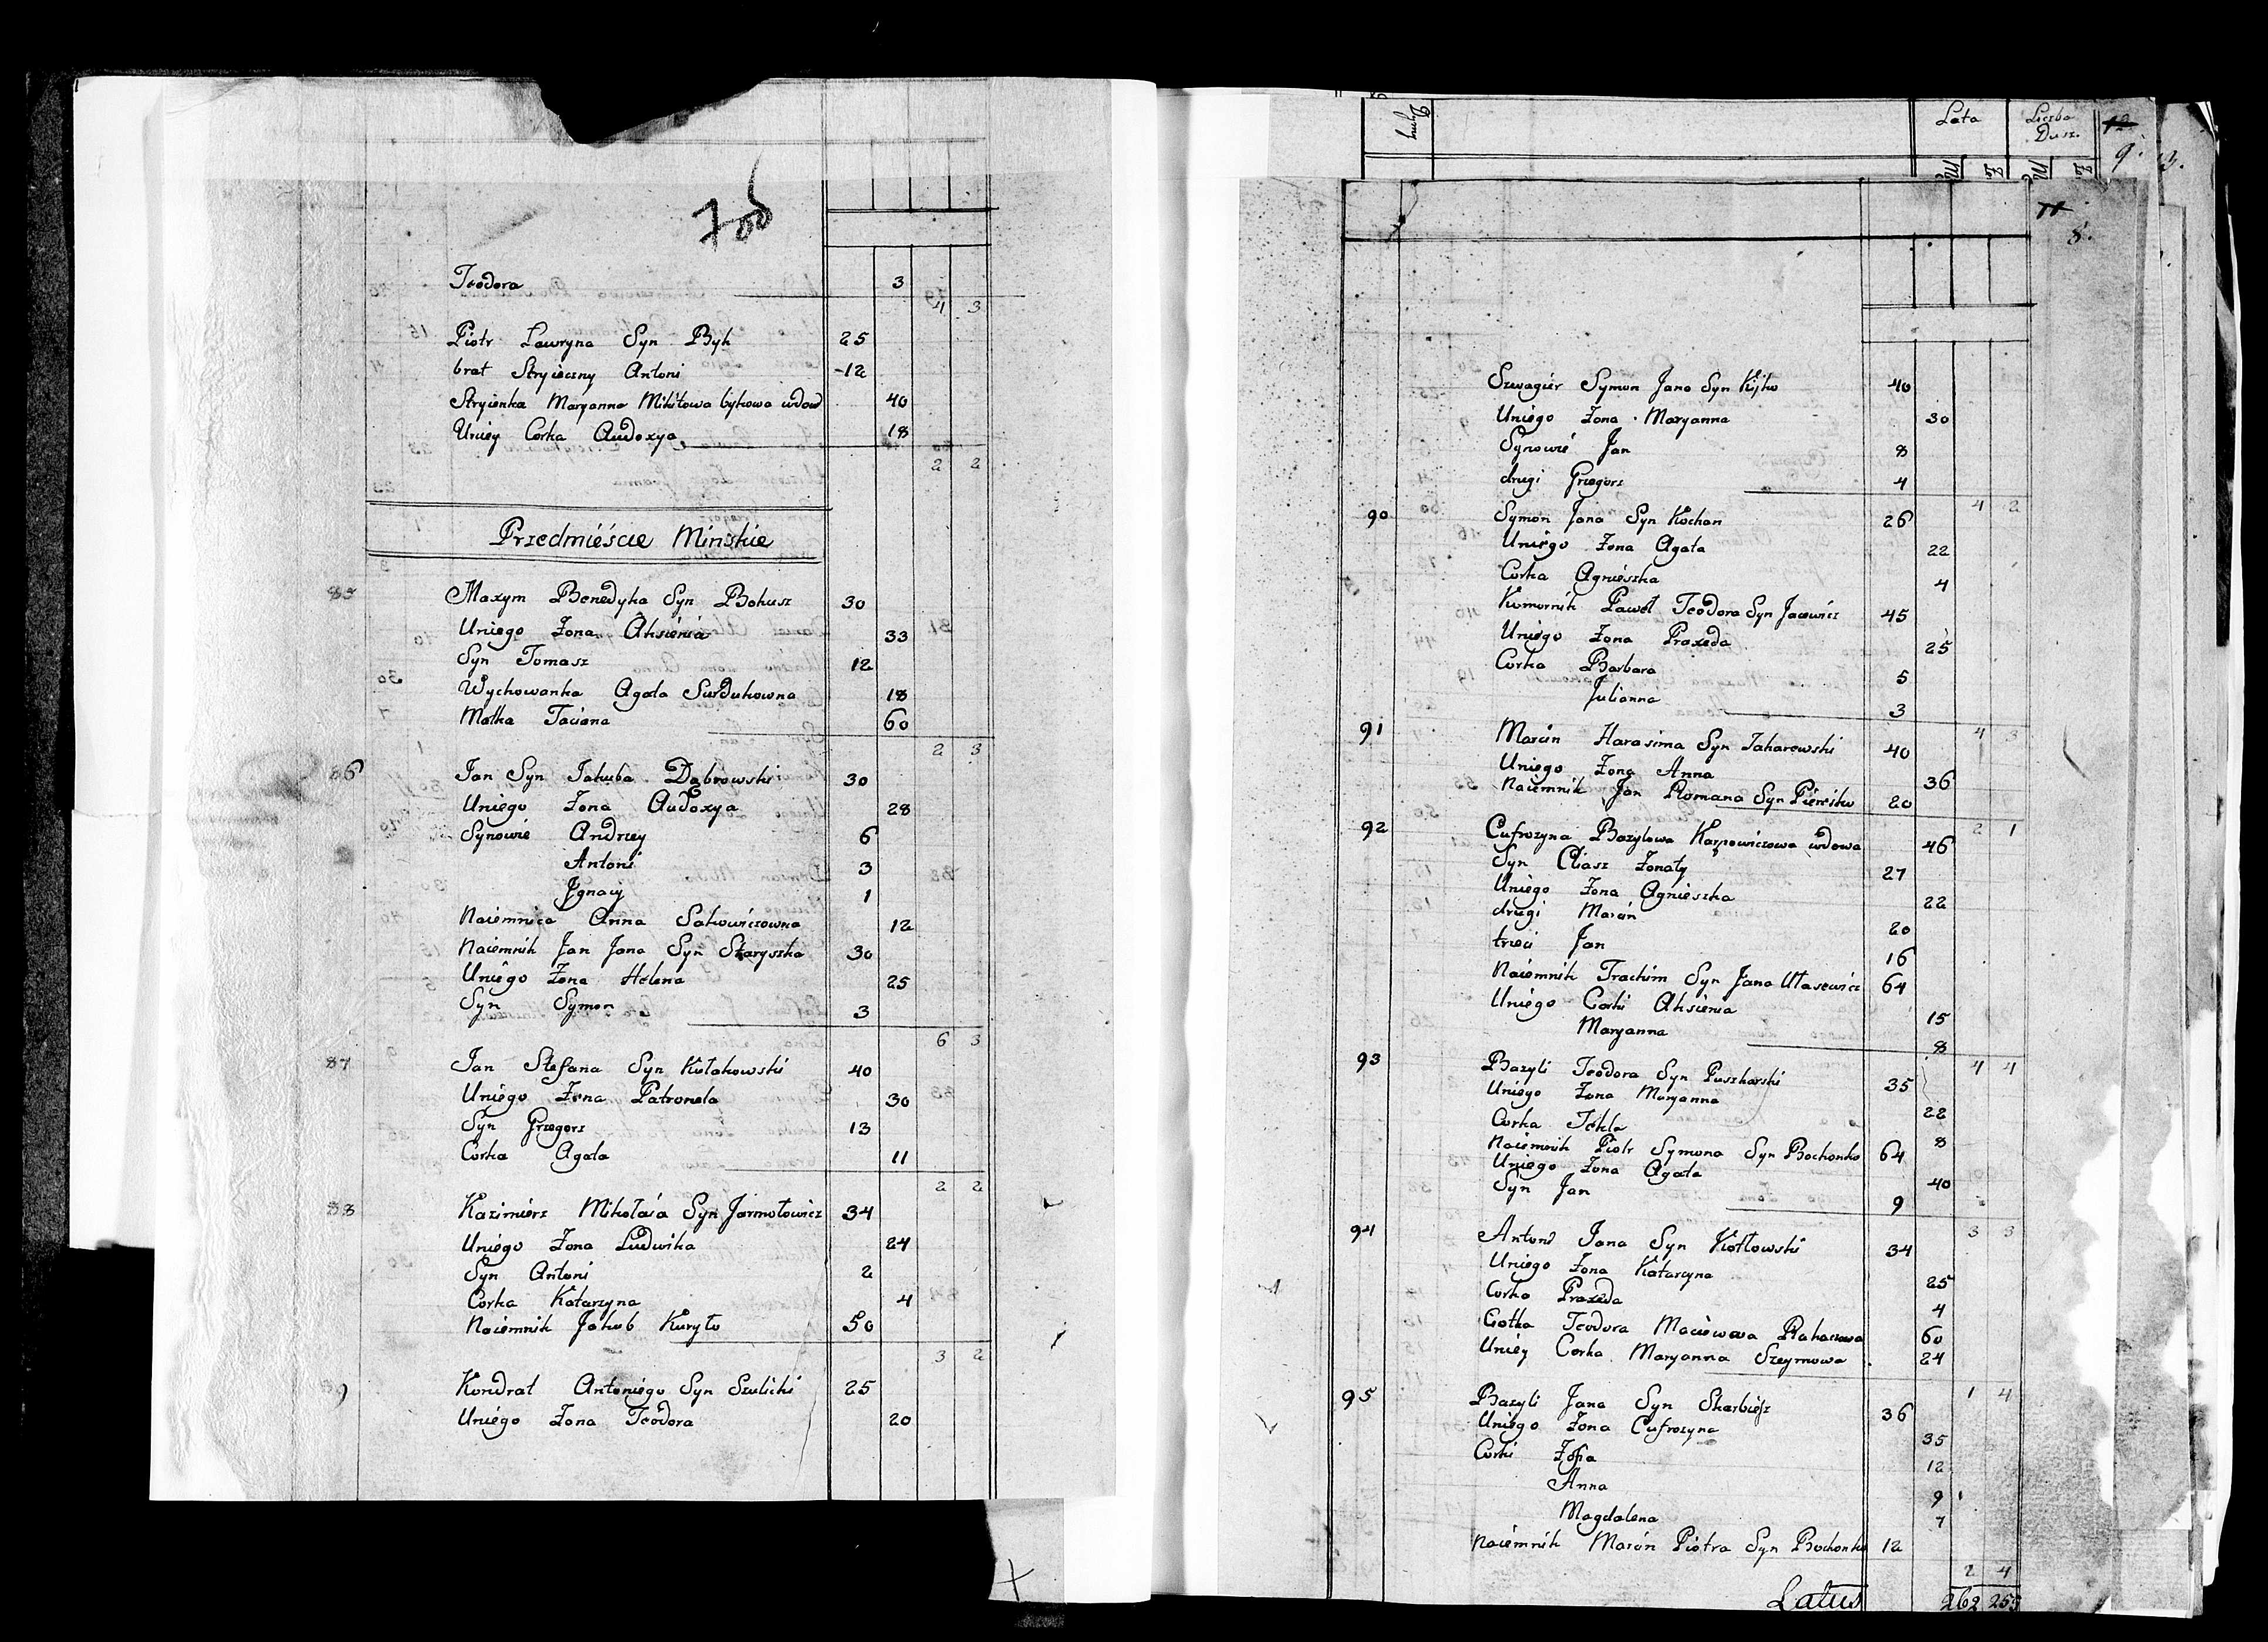 Teodora 3
4 3
Piotr Lawryna Syn Byk 25
brat Stryieczny Antoni 12
Stryienka Maryanna Mikitowa bykowa wdow 40
Uniey Corka Audoxya 18
2 2
Przedmiéście Minskie
85 Maxym Benedyka Syn Bohusz 30
Uniego Zona Aksienia 33
Syn Tomasz 12
Wychowanka Agata Surdukowna 18
Matka Taciana 60
2 3
86 Jan Syn Jakuba Dąbrowski 30
Uniego Zona Audoxya 28
Synowie Andrzey 6
Antoni 3
Jgnacy 1
Naiemnica Anna Sakowiczowna 12
Naiemnik Jan Jana Syn Staryszka 30
Uniego Zona Helena 25
Syn Symon 3
6 3
87 Jan Stefana Syn Kułakowski 40
Uniego Zona Patronela 30
Syn Grzegorz 13
Corka Agata 11
2 2
88 Kazimierz Mikołaia Syn Jarmołowicz 34
Uniego Zona Ludwika 24
Syn Antoni 2
Corka Katarzyna 4
Naiemnik Jakub Kuryło 50
3 2
89 Kondrat Antoniégo Syn Szulicki 25
Uniego Zona Teodora 20
Dymy Lata Liczba Dusz. 12
M Z M Z 9. 13.
11
8.
Szwagier Symon Jana Syn Kijko 40
Uniego Zona Maryanna 30
Synowie Jan 8
drugi Grzegorz 4
4 2
90 Symon Jana Syn Kochan 26
Uniego Zona Agata 22
Corka Agnieszka 4
Komornik Paweł Teodora Syn Jacewicz 45
Uniego Zona Praxeda 25
Corka Barbara 5
Julianna 3
4 3
91 Marcin Harasima Syn Zaharewski 40
Uniego Zona Anna 36
Naiemnik Jan Romana Syn 20
2 1
92 Eufrozyna Bazylowa Karpowiczowa wdowa 46
Syn Eliasz Zonaty 27
Uniego Zona Agnieszka 22
drugi Marcin 20
trzeci Jan 16
Naiemnik Trachim Syn Jana Ułasewicz 64
Uniego Corki Aksienia 15
Maryanna 8
4 4
93 Bazyli Teodora Syn Puszkarski 35
Uniego Zona Maryanna 22
Corka Tekla 8
Naiemnik Piotr Symona Syn Bochonko 64
Uniego Zona Agata 40
Syn Jan 9
3 3
94 Antoni Jana Syn Kozłowski 34
Uniego Zona Katarzyna 25
Corka Praxeda 4
Ciotka Teodora 60
Uniey Corka Maryanna Szeymowa 24
1 4
95 Bazyli Jana Syn Skarbiesz 36
Uniego Zona Eufrozyna 35
Corki Zofia 12
Anna 9
Magdalena 7
Naiemnik Marcin Piotra Syn Bochonko 12
2 4
Latus 262 255